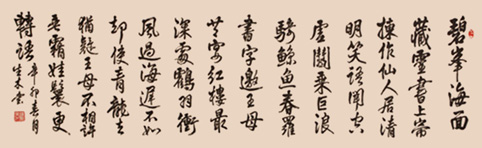 碧峯海面
藏靈書上帝
揀作仙人居清
明笑語聞空
虛鬪乘巨浪
騎鯨魚春羅
書字邀王母
共宴紅樓最
深處鶴羽衝
風過海遲不如
却使青龍去
猶疑王母不相許
垂霧娃鬟更
轉語 辛卯春月